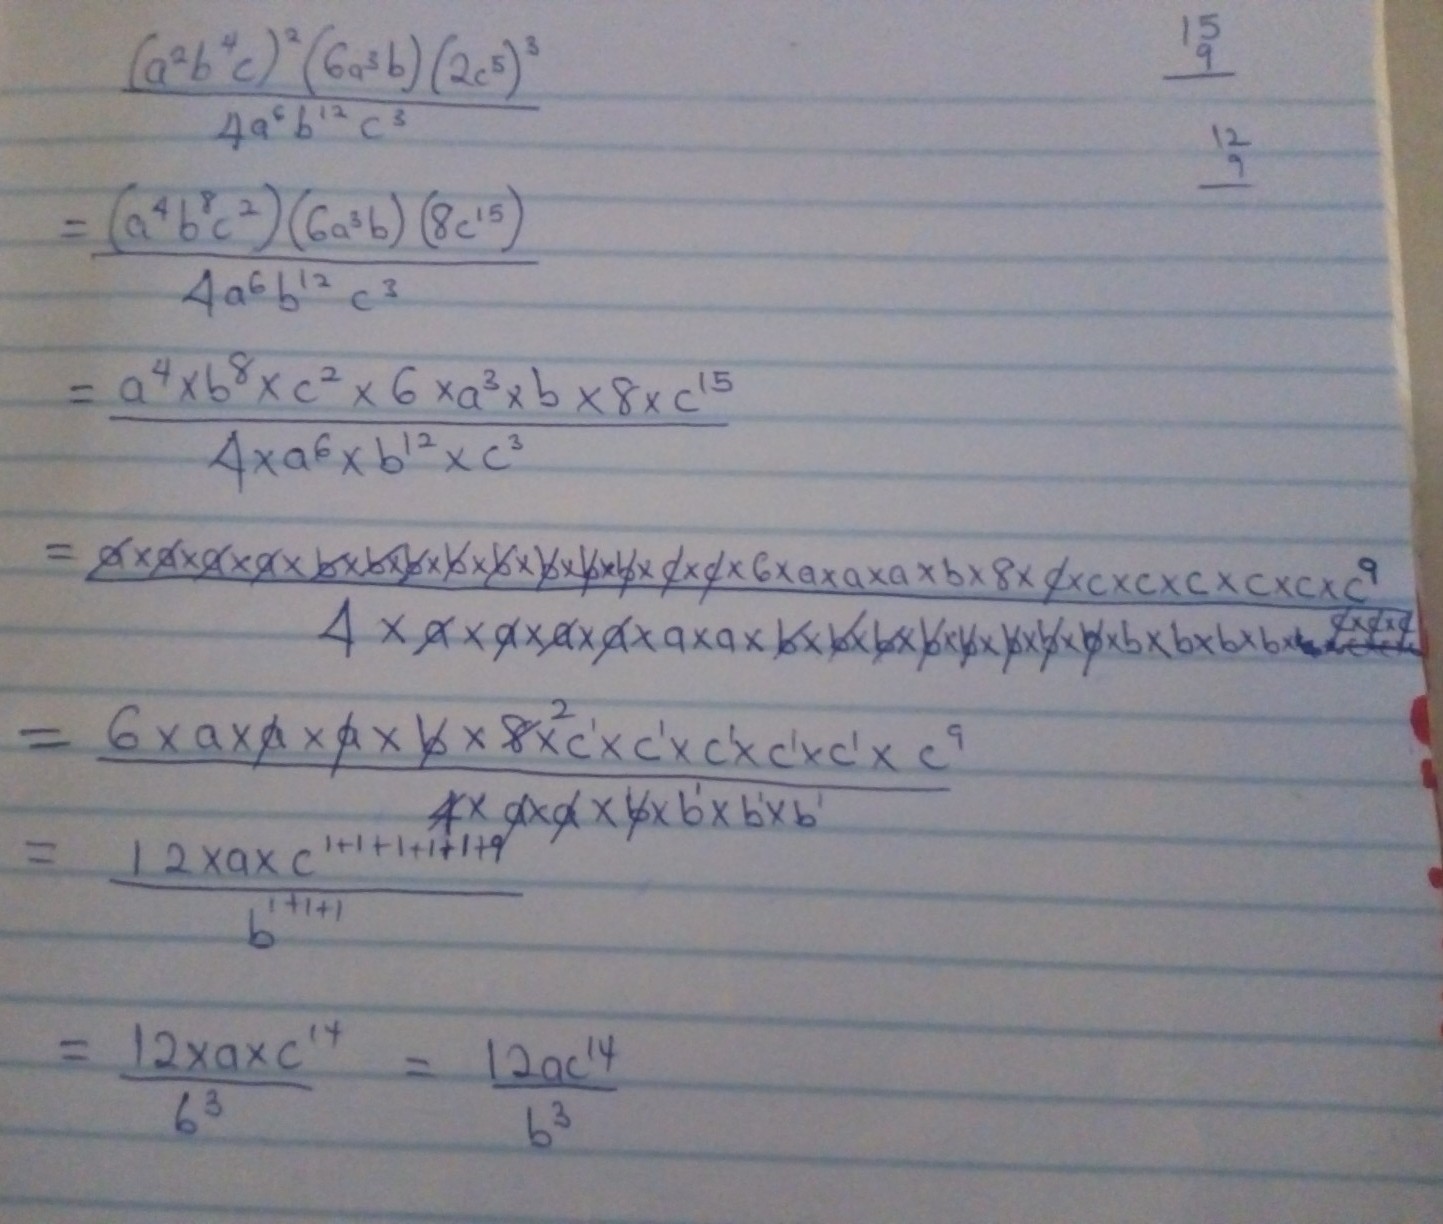 (a²b⁴c)²(6a³b)(2c⁵)³ 15
4a⁶b¹²c³ 9
12
9
= (a⁴b⁸c²)(6a³b)(8c¹⁵)
4a⁶b¹²c³
= a⁴×b⁸×c²×6×a³×b×8×c¹⁵
4×a⁶×b¹²×c³
= a×a×a×a×b×b×b×b×b×b×b×b×c×c×6×a×a×a×b×8×c×c×c×c×c×c×c⁹
4×a×a×a×a×a×a×b×b×b×b×b×b×b×b×b×b×b×b× c×c×c
= 6×a×a×a×b×8²×c¹×c¹×c¹×c¹×c¹×c⁹
4×a×a×b×b¹×b¹×b¹
= 12×a×c¹⁺¹⁺¹⁺¹⁺¹⁺⁹
b¹⁺¹⁺¹
= 12×a×c¹⁴ = 12ac¹⁴
b³ b³